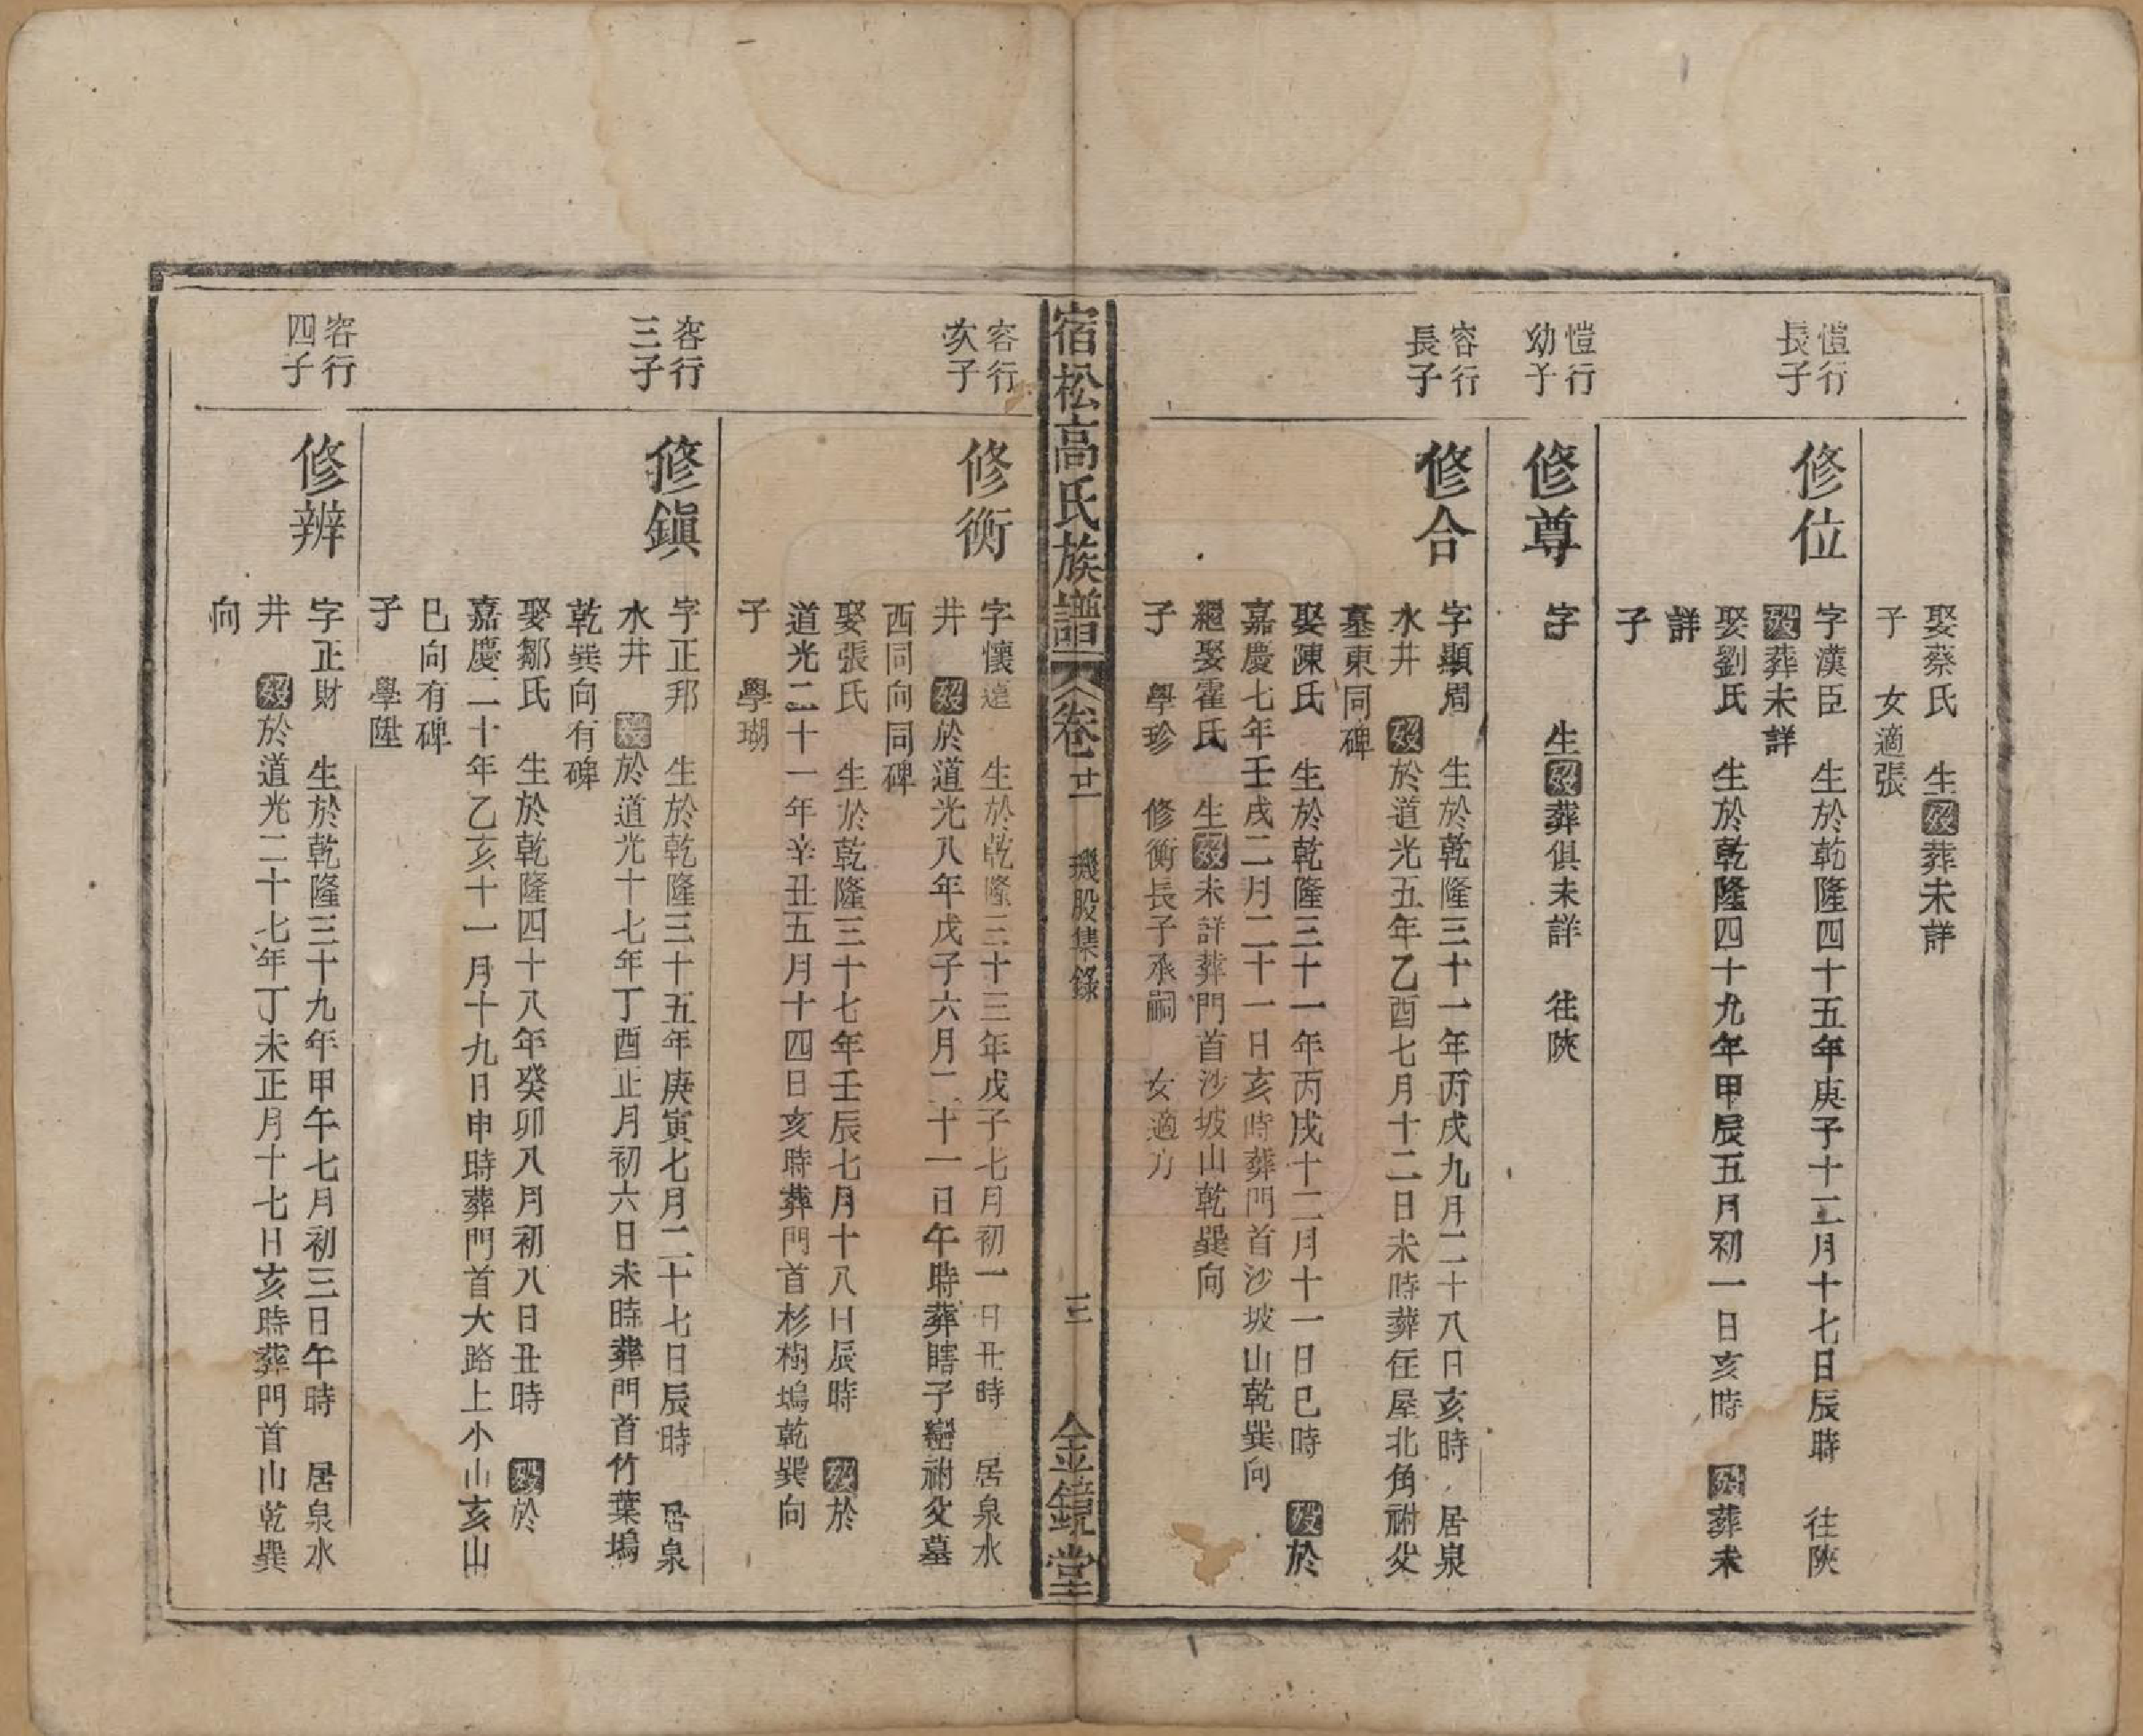 娶蔡氏　生歿葬未詳
子　女適張
愷行
長子
修位
字漢臣　生於乾隆四十五年庚子十二月十七日辰時　往陝
歿葬未詳
娶劉氏　生於乾隆四十九年甲辰五月初一日亥時　歿葬未
詳
子
愷行
幼子
修尊
字　　生歿葬俱未詳　往陝
容行
長子
修合
字顯周　生於乾隆三十一年丙戌九月二十八日亥時　居泉
水井　歿於道光五年乙酉七月十二日未時葬住屋北角祔父
墓東同碑
娶陳氏　生於乾隆三十一年丙戌十二月十一日巳時　歿於
嘉慶七年壬戌二月二十一日亥時葬門首沙坡山乾巽向
繼娶霍氏　生歿未詳葬門首沙坡山乾巽向
子　學珍　修衡長子承嗣　女適方
宿松高氏族譜　卷廿一　璣股集錄　三　金鏡堂
容行
次子
修衡
字懷遠　生於乾隆三十三年戊子七月初一日丑時　居泉水
井　歿於道光八年戊子六月二十一日午時葬瞎子壪祔父墓
西同向同碑
娶張氏　生於乾隆三十七年壬辰七月十八日辰時　歿於
道光二十一年辛丑五月十四日亥時葬門首杉樹塢乾巽向
子　學瑚
容行
三子
修鎮
字正邦　生於乾隆三十五年庚寅七月二十七日辰時　居泉
水井　歿於道光十七年丁酉正月初六日未時葬門首竹葉塢
乾巽向有碑
娶鄒氏　生於乾隆四十八年癸卯八月初八日丑時　歿於
嘉慶二十年乙亥十一月十九日申時葬門首大路上小山亥山
巳向有碑
子　學陞
容行
四子
修辨
字正財　生於乾隆三十九年甲午七月初三日午時　居泉水
井　歿於道光二十七年丁未正月十七日亥時葬門首山乾巽
向